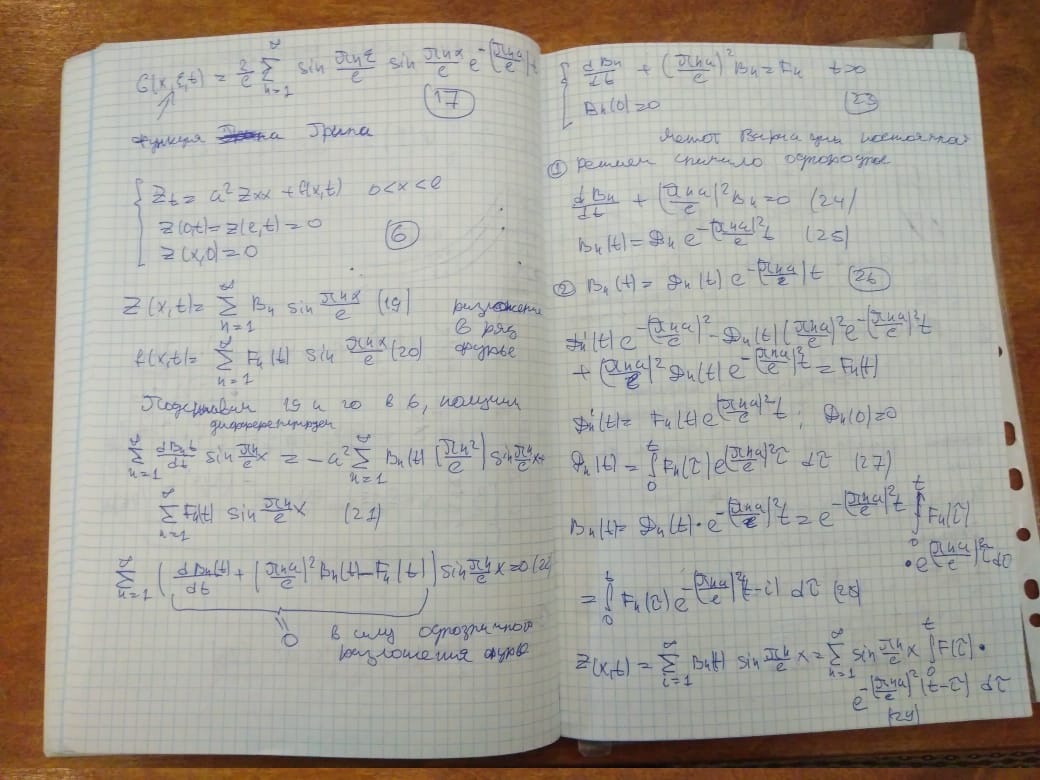 G(x,ξ,t) = 2/e ∑_{n=1}^{∞} sin πnξ/e sin πnx/e e^{-(πna/e)t}
(17)
функция Грина
Z_t = a² Z_xx + f(x,t) 0<x<e
Z(0,t) = Z(e,t) = 0
Z(x,0) = 0
(6)
Z(x,t) = ∑_{n=1}^{∞} B_n sin πnx/e (19) разложение
в ряд
f(x,t) = ∑_{n=1}^{∞} F_n(t) sin πnx/e (20) фурье
Подставим 19 и 20 в 6, получим
дифференцируем
∑_{n=1}^{∞} dB_nt/dt sin πn/e x = -a² ∑_{n=1}^{∞} B_n(t) (πn²/e) sin πn/e x +
∑_{n=1}^{∞} F_n(t) sin πn/e x (21)
∑_{n=1}^{∞} (dB_n(t)/dt + (πna/e)² B_n(t) - F_n(t)) sin πn/e x = 0 (22)
0
в силу
разложения фурье
dB_n/dt + (πna/e)² B_n = F_n t>0
B_n(0) = 0 (23)
метот Вариации постоянной
① решаем однородн
dB_n/dt + (πna/e)² B_n = 0 (24)
B_n(t) = D_n e^{-(πna/e)²t} (25)
② B_n(t) = D_n(t) e^{-(πna/e)t} (26)
D_n'(t) e^{-(πna/e)²} - D_n(t) (πna/e)² e^{-(πna/e)²t}
+ (πna/e)² D_n(t) e^{-(πna/e)²t} = F_n(t)
D_n'(t) = F_n(t) e^{(πna/e)²t}; D_n(0) = 0
D_n(t) = ∫_0^t F_n(τ) e^{(πna/e)²τ} dτ (27)
B_n(t) = D_n(t) · e^{-(πna/e)²t} = e^{-(πna/e)²t} ∫_0^t F_n(τ)
· e^{(πna/e)²τ} dτ
= ∫_0^t F_n(τ) e^{-(πna/e)²(t-τ)} dτ (28)
Z(x,t) = ∑_{i=1}^{∞} B_n(t) sin πn/e x = ∑_{n=1}^{∞} sin πn/e x ∫_0^t F(τ) ·
e^{-(πna/e)²(t-τ)} dτ
(29)